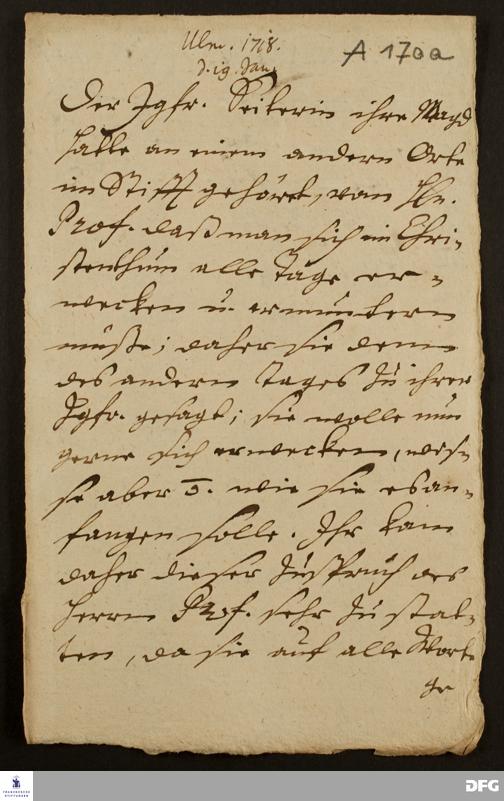 Ulm. 1718.
d. 19. Jan.
A 170a
Der Jgfr. Seiterin ihre Magd
hatte an einem andern Orte
im Stifft gehöret, vom Hn.
Prof. daß man sich im Chri-
stenthum alle Tage er-
wecken u. ermuntern
müße; daher sie denn
des andern Tages zu ihrer
Jgfr. gesagt; sie wolle nun
gerne sich erwecken, wis-
se aber wie sie es an-
fangen solle. Ihr kam
daher dieser Zuspruch des
Herrn Prof. sehr zu stat-
ten, da sie auf alle Worte
FRANCKESCHE
STIFTUNGEN
DFG